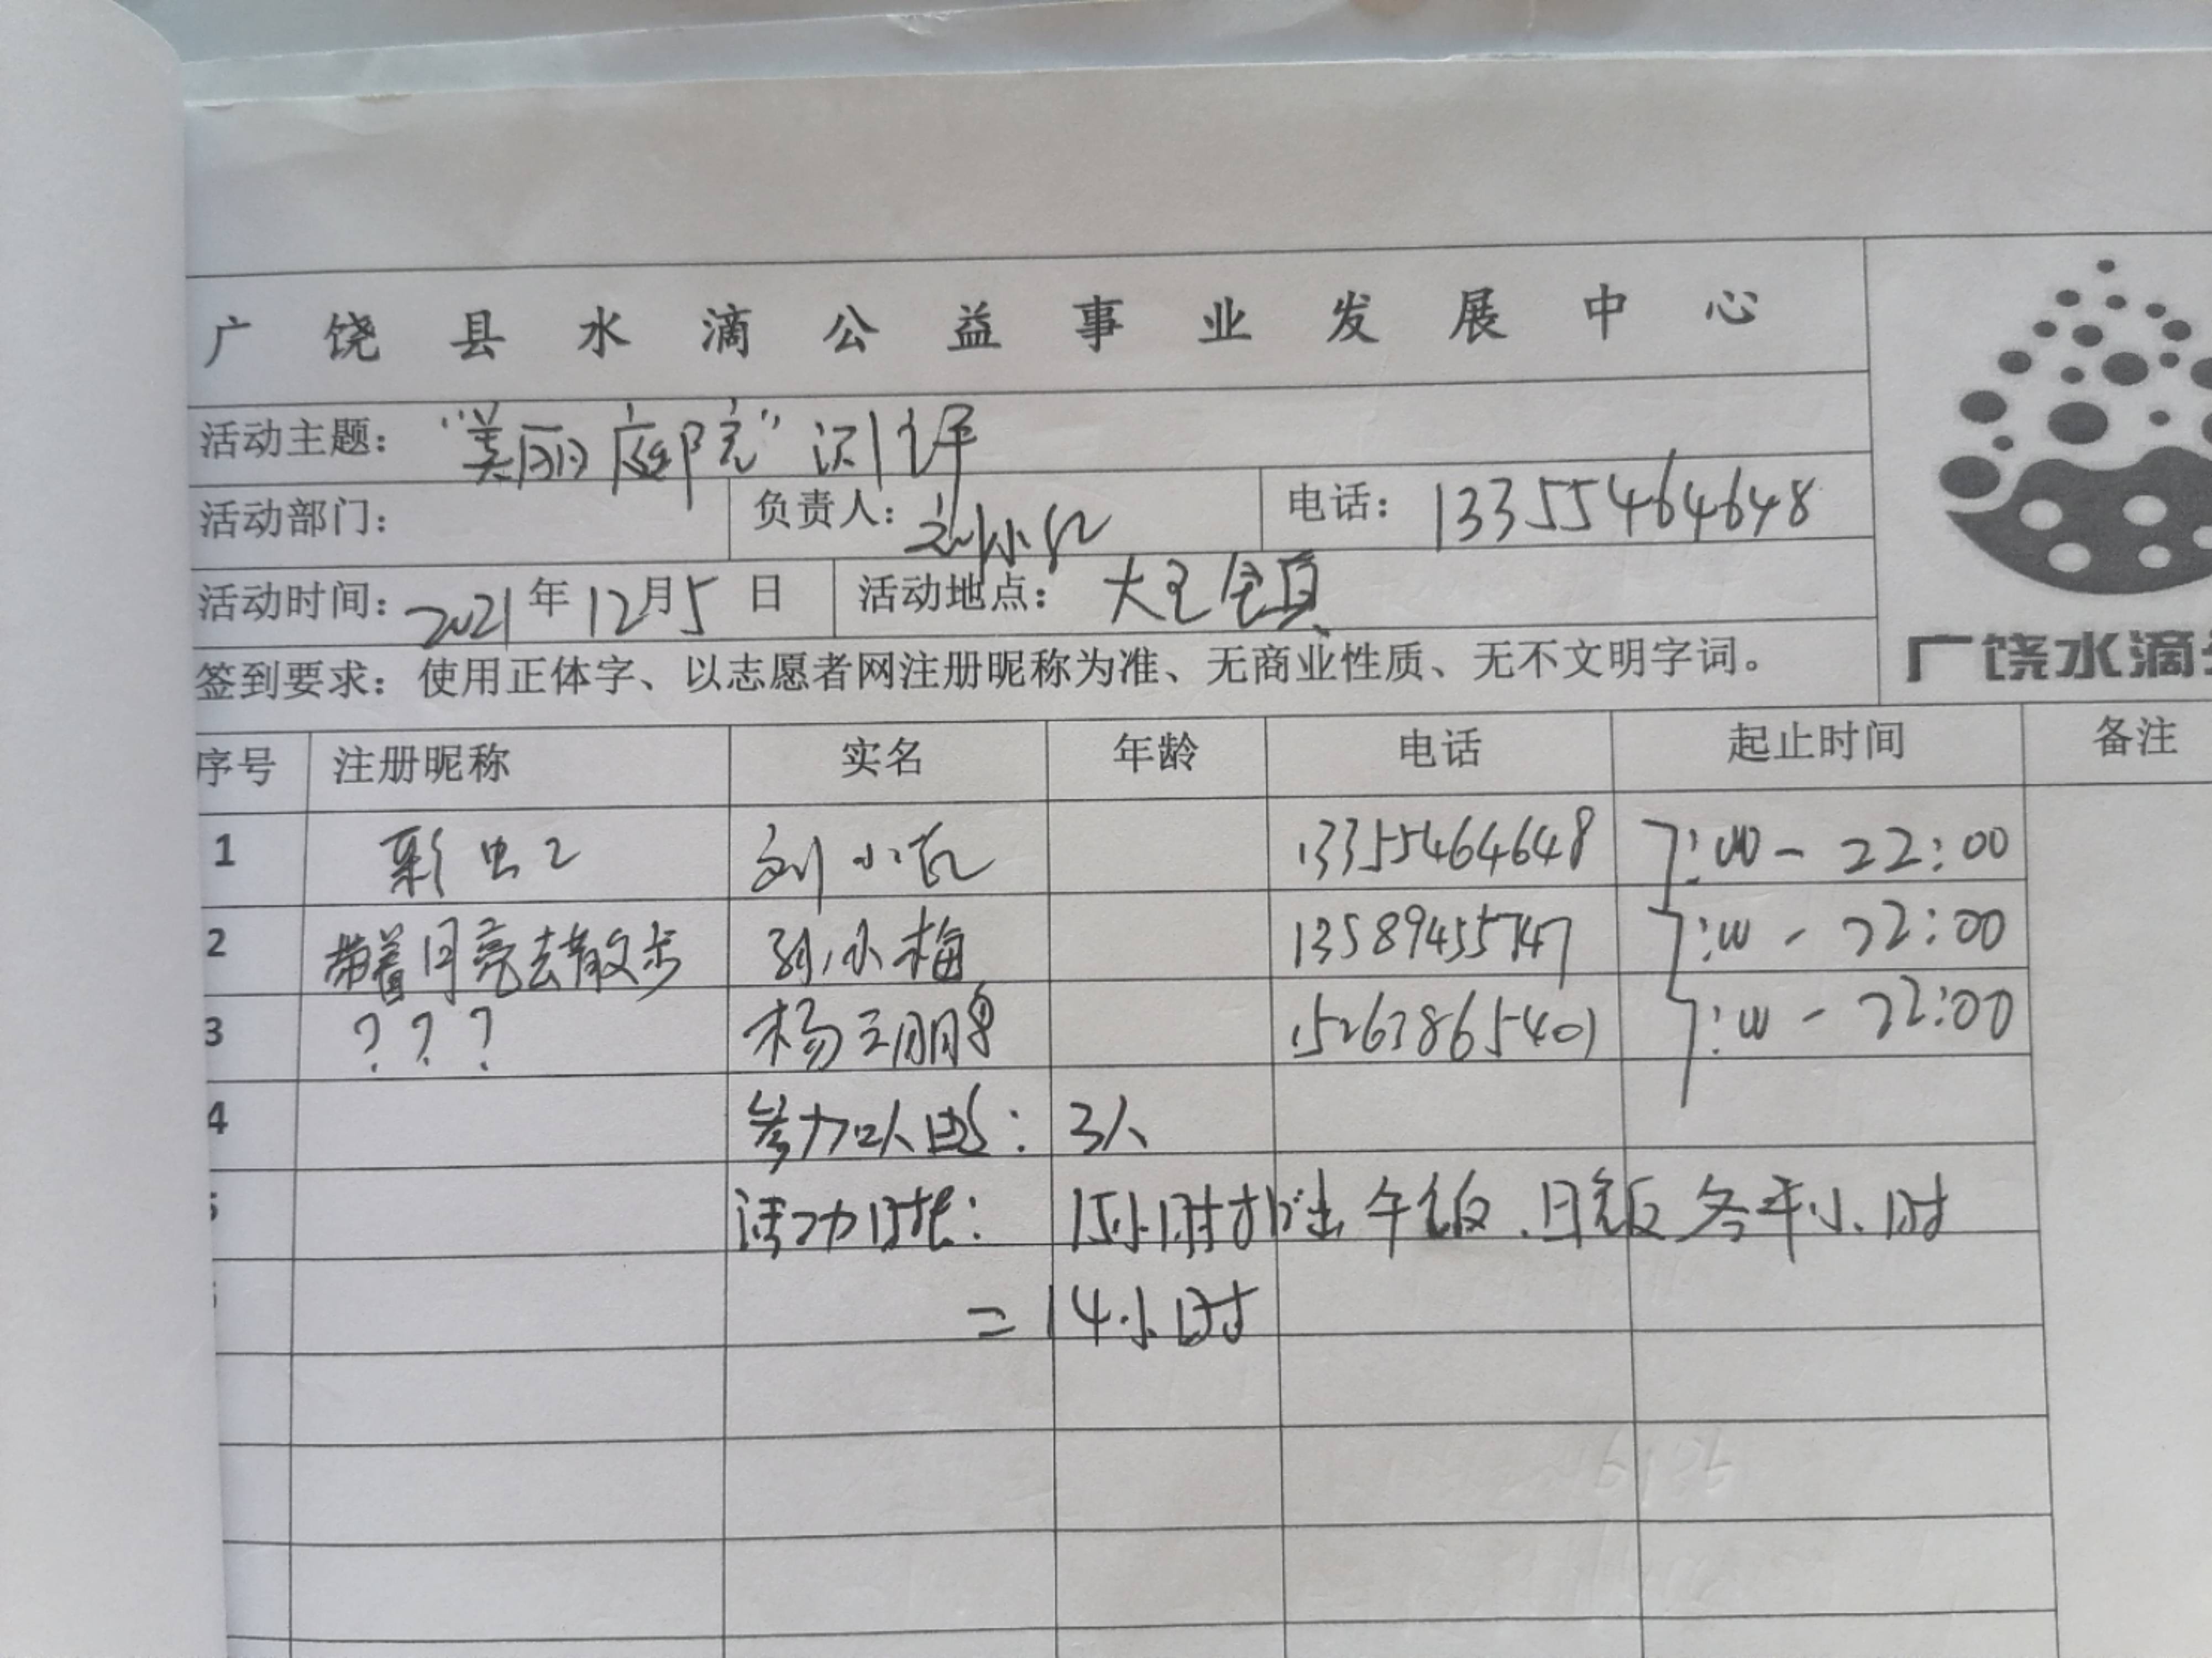 广饶县水滴公益事业发展中心
活动主题：“美丽庭院”测评
活动部门： 负责人：刘小红 电话：13355464648
活动时间：2021年12月5日 活动地点：大王全镇
签到要求：使用正体字、以志愿者网注册昵称为准、无商业性质、无不文明字词。
广饶水滴
序号 注册昵称 实名 年龄 电话 起止时间 备注
1 彩虹 刘小红 13355464648 7:00-22:00
2 带着月亮去散步 孙小梅 13589455747 7:00-22:00
3 ??? 杨 15263865401 7:00-22:00
4 参加人员：3人
5 活动时长：15小时扣去午饭、晚饭各半小时
=14小时